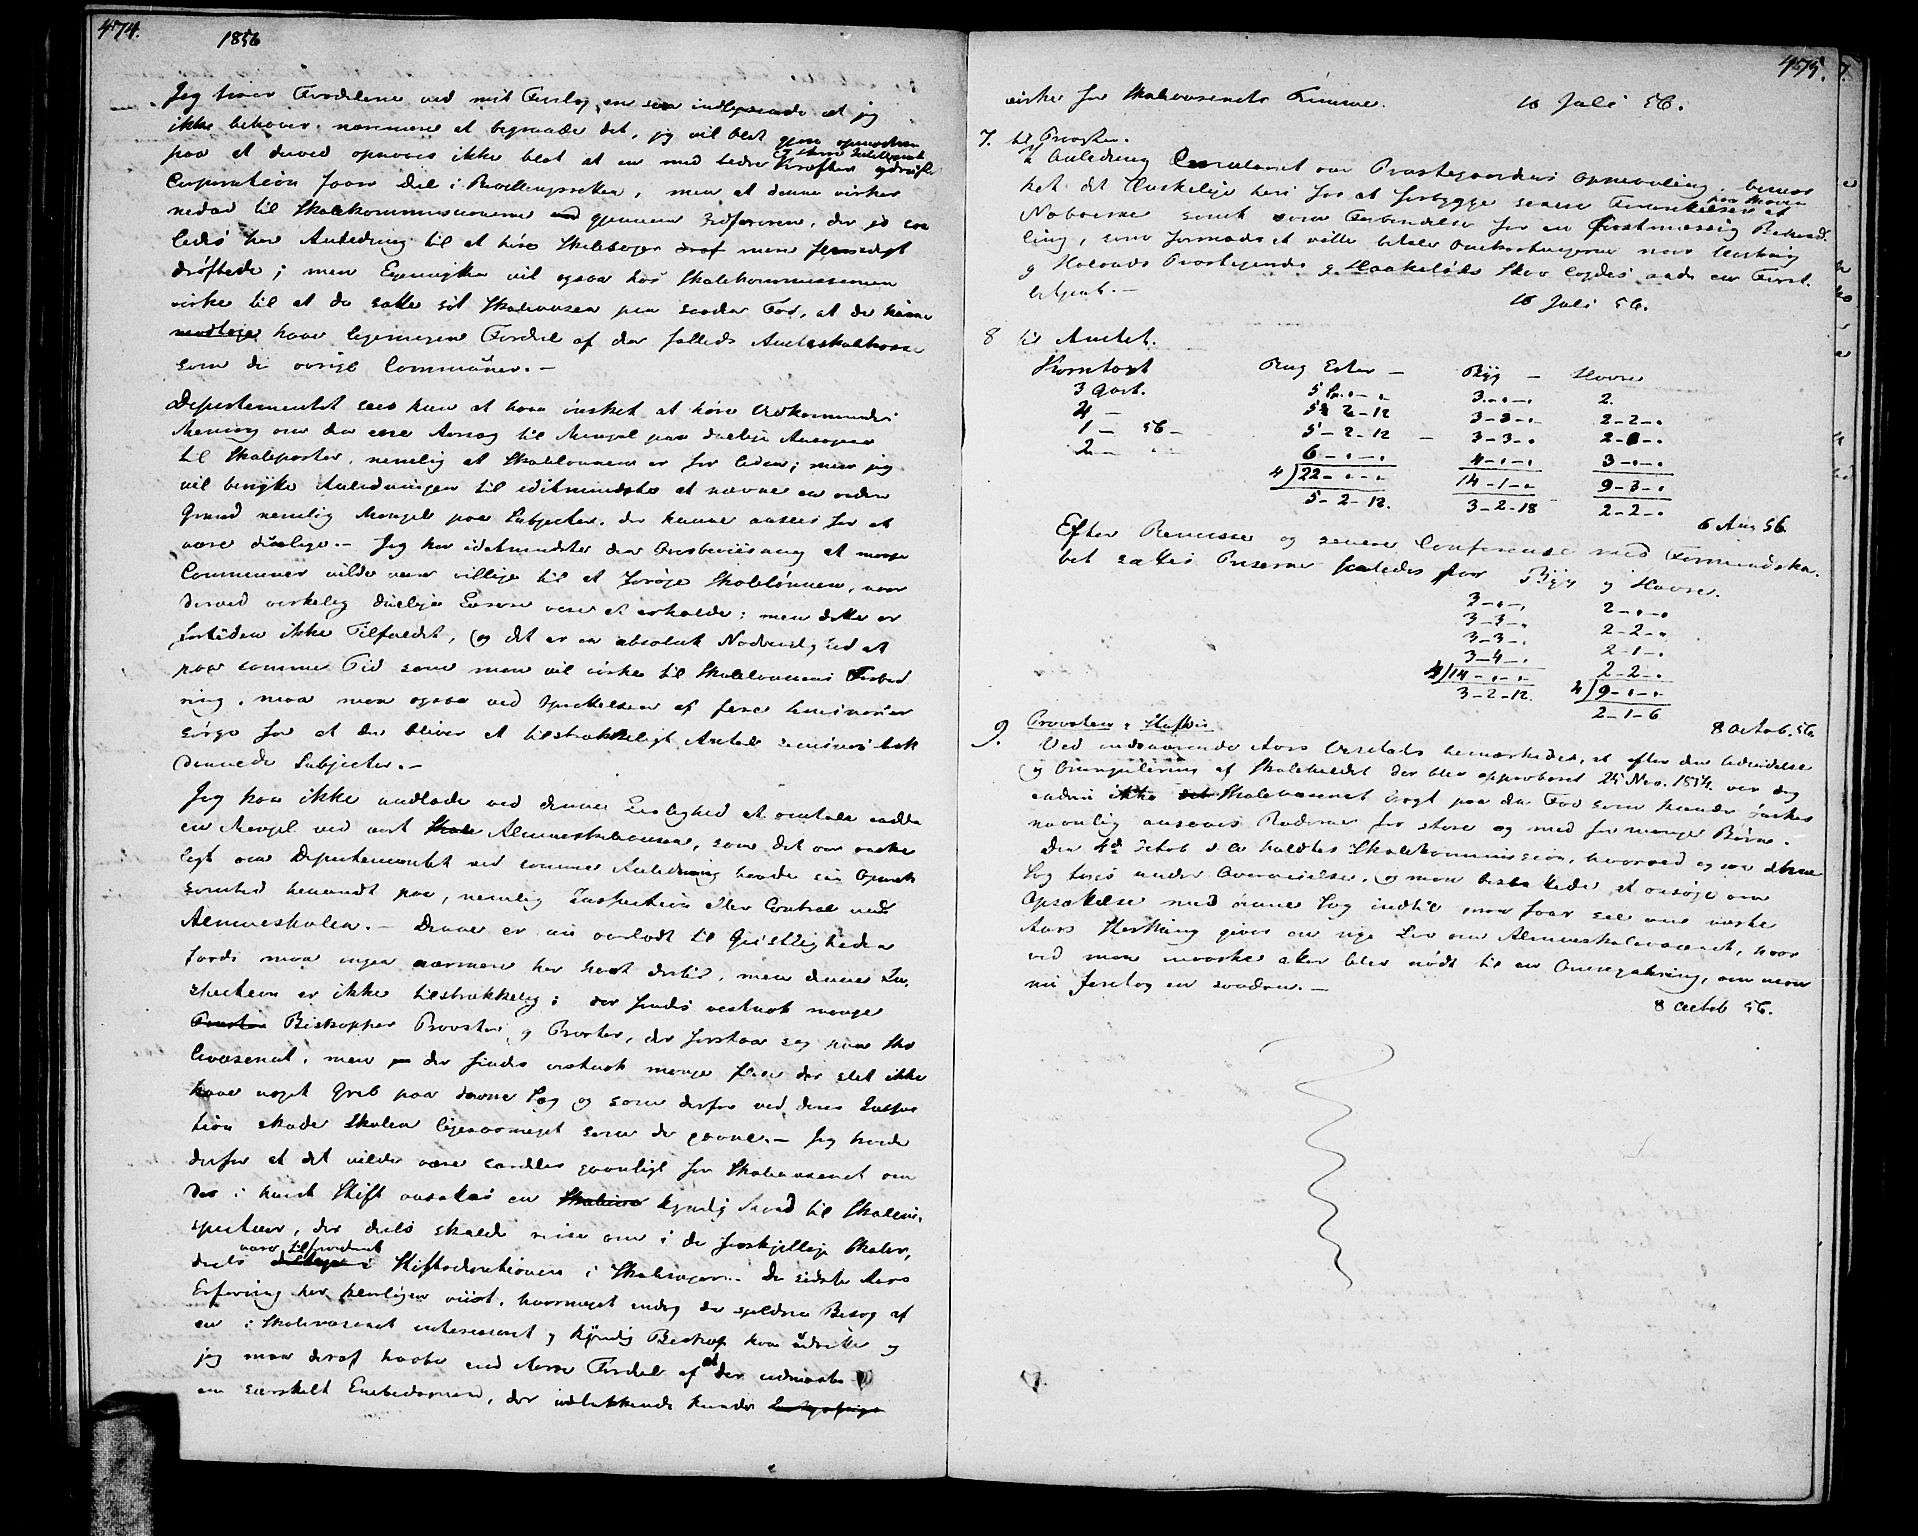 474.
1856
Jeg troer Fordelene ved mit Forslag ere saa indlysende at jeg
ikke behøver nærmere at begrunde det, jeg vil blot gjøre opmærksom
paa at derved opnaaes ikke blot at en med bedre Kræfter udrustet
Corporation faaer Deel i Bevillingsretten, men at denne virker
nedad til Skolekommissionerne gjennem Ordføreren, der jo saa
ledes har Anledning til at høre Skolesager mere alsidigt
drøftede; men Egennytten vil ogsaa hos Skolekommissionen
virke til at de sætte sit Skolevæsen paa saadan Fod, at de kunne
have ligesaamegen Fordel af den fælleds Amtsskolekasse
som de øvrige Communer. -
Departementet sees kun at have ønsket at høre Vedkommendes
Mening om den ene Aarsag til Mangel paa duelige Ansøgere
til Skoleposter, nemlig at Skolelønnen er for liden; men jeg
vil benytte Anledningen til idetmindste at nævne en anden
Grund nemlig Mangel paa Subjecter, der kunne ansees for at
være duelige. - Jeg har idetmindste den Overbeviisning at mange
Communer vilde være villige til at forøge Skolelønnen, naar
derved virkelig duelige Lærere vare at erholde; men dette er
fortiden ikke Tilfældet, og det er en absolut Nødvendighed at
paa samme Tid som man vil virke til Skolelønnens Forbed
ring, maa man ogsaa ved Oprettelsen af flere Seminarier
sørge for at der bliver et tilstrækkeligt Antal seministisk
dannede Subjecter. -
Jeg kan ikke undlade ved denne Leilighed at omtale endnu
en Mangel ved vort Almueskolevæsen, som det var ønske
ligt om Departementet ved samme Anledning havde sin Opmærk
somhed henvendt paa, nemlig Inspection eller Control med
Almueskolen. - Denne er nu overladt til Geistligheden
fordi man ingen nærmere har havt dertil, men denne In
spection er ikke tilstrækkelig; der findes vistnok mange
Biskopper Provster og Præster, der forstaae sig paa Sko
levæsenet, men der findes vistnok mange flere der slet ikke
have noget Greb paa denne Sag og som derfor ved deres Inspec
tion skade Skolen ligesaameget som de gavne. - Jeg troer
derfor at det vilde være særdeles gavnligt for Skolevæsenet om
der i hvert Stift ansattes en kyndig Mand til Skolein
specteur, der deels skulde reise om i de forskjellige Skoler,
deels være tilforordnet Stiftsdirectionen i Skolesager. De sidste Aars
Erfaring har heroligen viist, hvormeget endog de sjeldne Besøg af
en i Skolevæsenet interesseret og kyndig Biskop kan udrette og
jeg maa deraf haabe end større Fordel af at der udnævntes
en særskilt Embedsmand, der udelukkende kunde
475.
virke for Skolevæsenets Fremme. 16 Juli 56.
7. til Provsten.
I Anledning Circulairet om Præstegaardenes Opmaaling. bemær
ket det Ønskelige heri for at forbygge senere Fornærmelser af
Naboerne samt som Forberedelse for en forstmæssig Behand
ling, som formodet vilde betale Omkostningerne naar Hurdalens
og Holands Præstegaarde og Haakelsøs Skov lagdes under en Forst-
betjent. -
16 Juli 56.
8 til Amtet.
Korntaxt Rug Erter - Byg - Havre
3 Qvart. 5 - " - " 3 - " - " 2.
4 - 5 - 2 - 12 3 - 3 - " 2 - 2 - "
1 - 56 - 5 - 2 - 12 - 3 - 3 - " 2 - " - "
2 - 6 - " - " 4 - " - " 3 - " - "
4)22 - " - " 14 - 1 - " 9 - 3 - "
5 - 2 - 12. 3 - 2 - 18 2 - 2 - "
6 Aug 56.
Efter Remisse og senere Conference med Formandska
bet sattes Priserne saaledes for Byg og Havre.
3 - " - " 2 - " - "
3 - 3 - " 2 - 2 - "
3 - 3 - " 2 - 1 - "
3 - 4 - " 2 - 2 - "
4)14 - " - " 4)9 - " - "
3 - 2 - 12. 2 - 1 - 6
8 Octob. 56.
9. Provsten og Stiftet
Ved indeværende Aars Visitats bemærkedes, at efter den Udvidelse
og Omregulering af Skoleholdet der blev approberet 25 Nov. 1854. var dog
endnu ikke Skolevæsenet bragt paa den Fod som kunde ønskes
navnlig ansaaes Roderne for store og med for mange Børn.
Den 4de Octob d. A. holdtes Skolekommission, hvorved ogsaa denne
Sag toges under Overveielse, og man besluttede at ansøge om
Opsættelse med denne Sag indtil man faaer see om næste
Aars Storthing giver en nye Lov om Almueskolevæsenet, hvor
ved man maaske atter blev nødt til en Omregulering, om man
nu foretog en saadan. -
8 Octob 56.